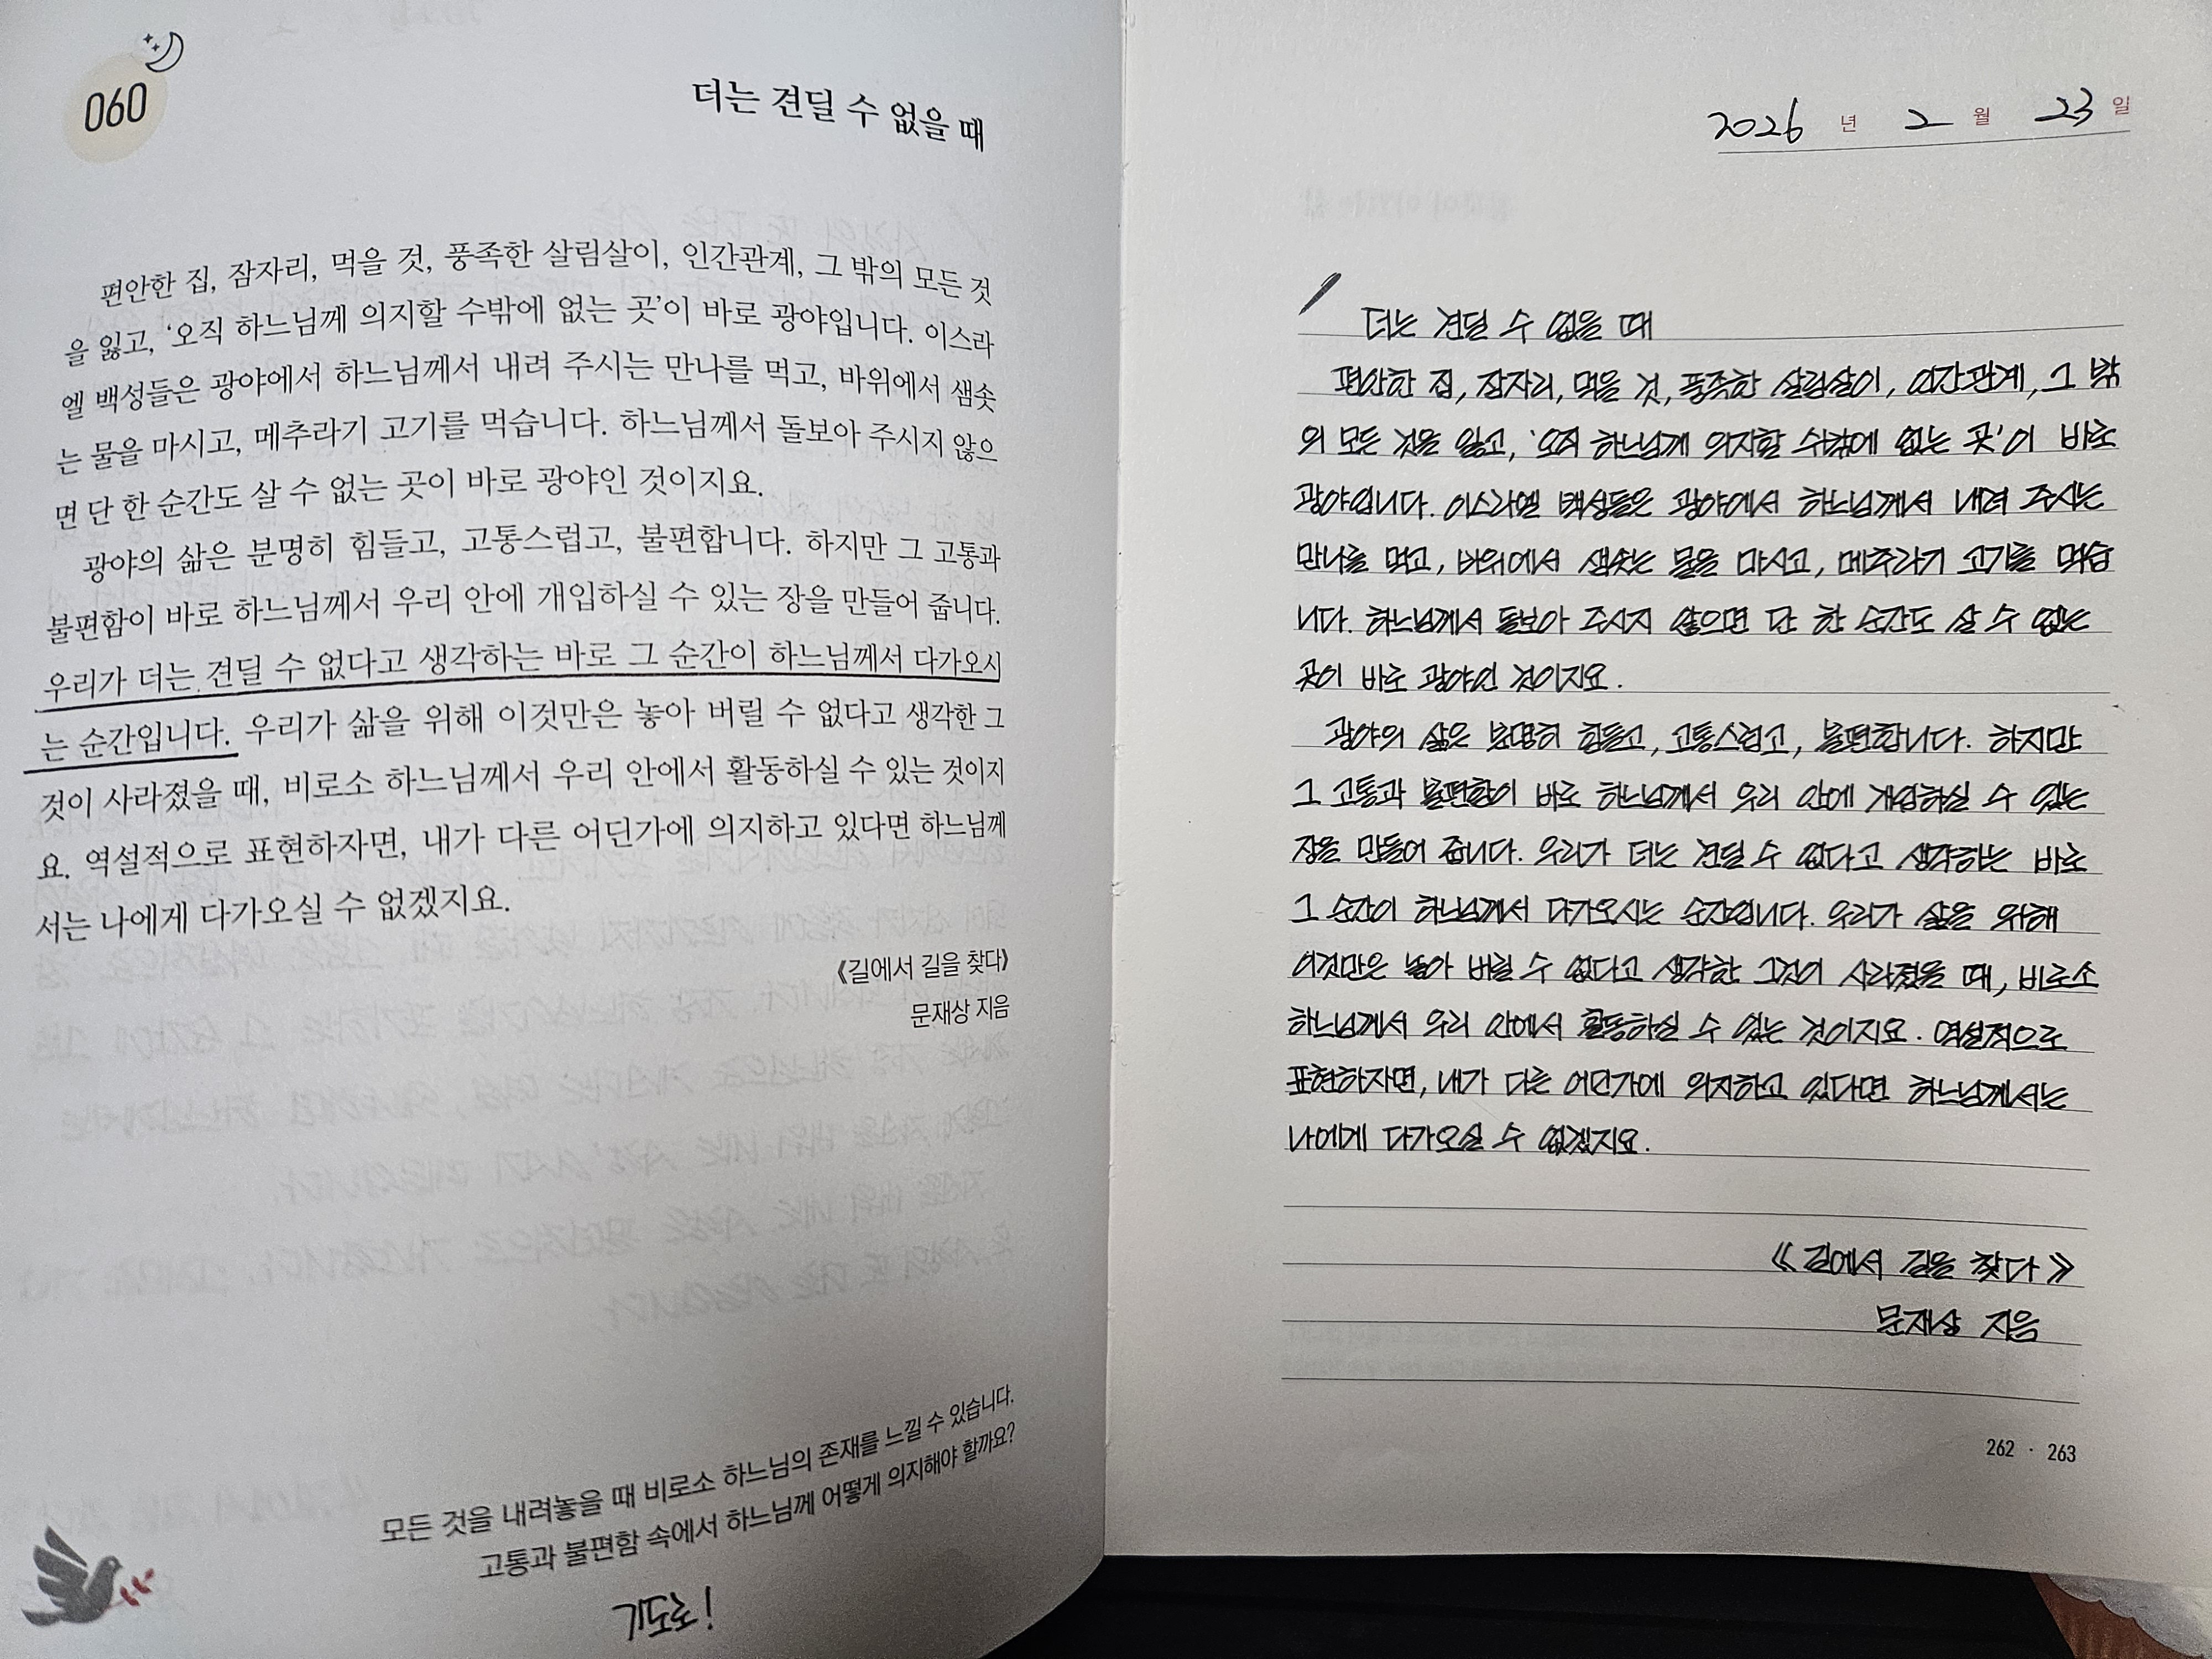 060
더는 견딜 수 없을 때
편안한 집, 잠자리, 먹을 것, 풍족한 살림살이, 인간관계, 그 밖의 모든 것
을 잃고, ‘오직 하느님께 의지할 수밖에 없는 곳’이 바로 광야입니다. 이스라
엘 백성들은 광야에서 하느님께서 내려 주시는 만나를 먹고, 바위에서 샘솟
는 물을 마시고, 메추라기 고기를 먹습니다. 하느님께서 돌보아 주시지 않으
면 단 한 순간도 살 수 없는 곳이 바로 광야인 것이지요.
광야의 삶은 분명히 힘들고, 고통스럽고, 불편합니다. 하지만 그 고통과
불편함이 바로 하느님께서 우리 안에 개입하실 수 있는 장을 만들어 줍니다.
우리가 더는 견딜 수 없다고 생각하는 바로 그 순간이 하느님께서 다가오시
는 순간입니다. 우리가 삶을 위해 이것만은 놓아 버릴 수 없다고 생각한 그
것이 사라졌을 때, 비로소 하느님께서 우리 안에서 활동하실 수 있는 것이지
요. 역설적으로 표현하자면, 내가 다른 어딘가에 의지하고 있다면 하느님께
서는 나에게 다가오실 수 없겠지요.
《길에서 길을 찾다》
문재상 지음
모든 것을 내려놓을 때 비로소 하느님의 존재를 느낄 수 있습니다.
고통과 불편함 속에서 하느님께 어떻게 의지해야 할까요?
2026 년 2 월 23 일
더는 견딜 수 없을 때
편안한 집, 잠자리, 먹을 것, 풍족한 살림살이, 인간관계, 그 밖
의 모든 것을 잃고, ‘오직 하느님께 의지할 수밖에 없는 곳’이 바로
광야입니다. 이스라엘 백성들은 광야에서 하느님께서 내려 주시는
만나를 먹고, 바위에서 샘솟는 물을 마시고, 메추라기 고기를 먹습
니다. 하느님께서 돌보아 주시지 않으면 단 한 순간도 살 수 없는
곳이 바로 광야인 것이지요.
광야의 삶은 분명히 힘들고, 고통스럽고, 불편합니다. 하지만
그 고통과 불편함이 바로 하느님께서 우리 안에 개입하실 수 있는
장을 만들어 줍니다. 우리가 더는 견딜 수 없다고 생각하는 바로
그 순간이 하느님께서 다가오시는 순간입니다. 우리가 삶을 위해
이것만은 놓아 버릴 수 없다고 생각한 그것이 사라졌을 때, 비로소
하느님께서 우리 안에서 활동하실 수 있는 것이지요. 역설적으로
표현하자면, 내가 다른 어딘가에 의지하고 있다면 하느님께서는
나에게 다가오실 수 없겠지요.
《길에서 길을 찾다》
문재상 지음
262 · 263